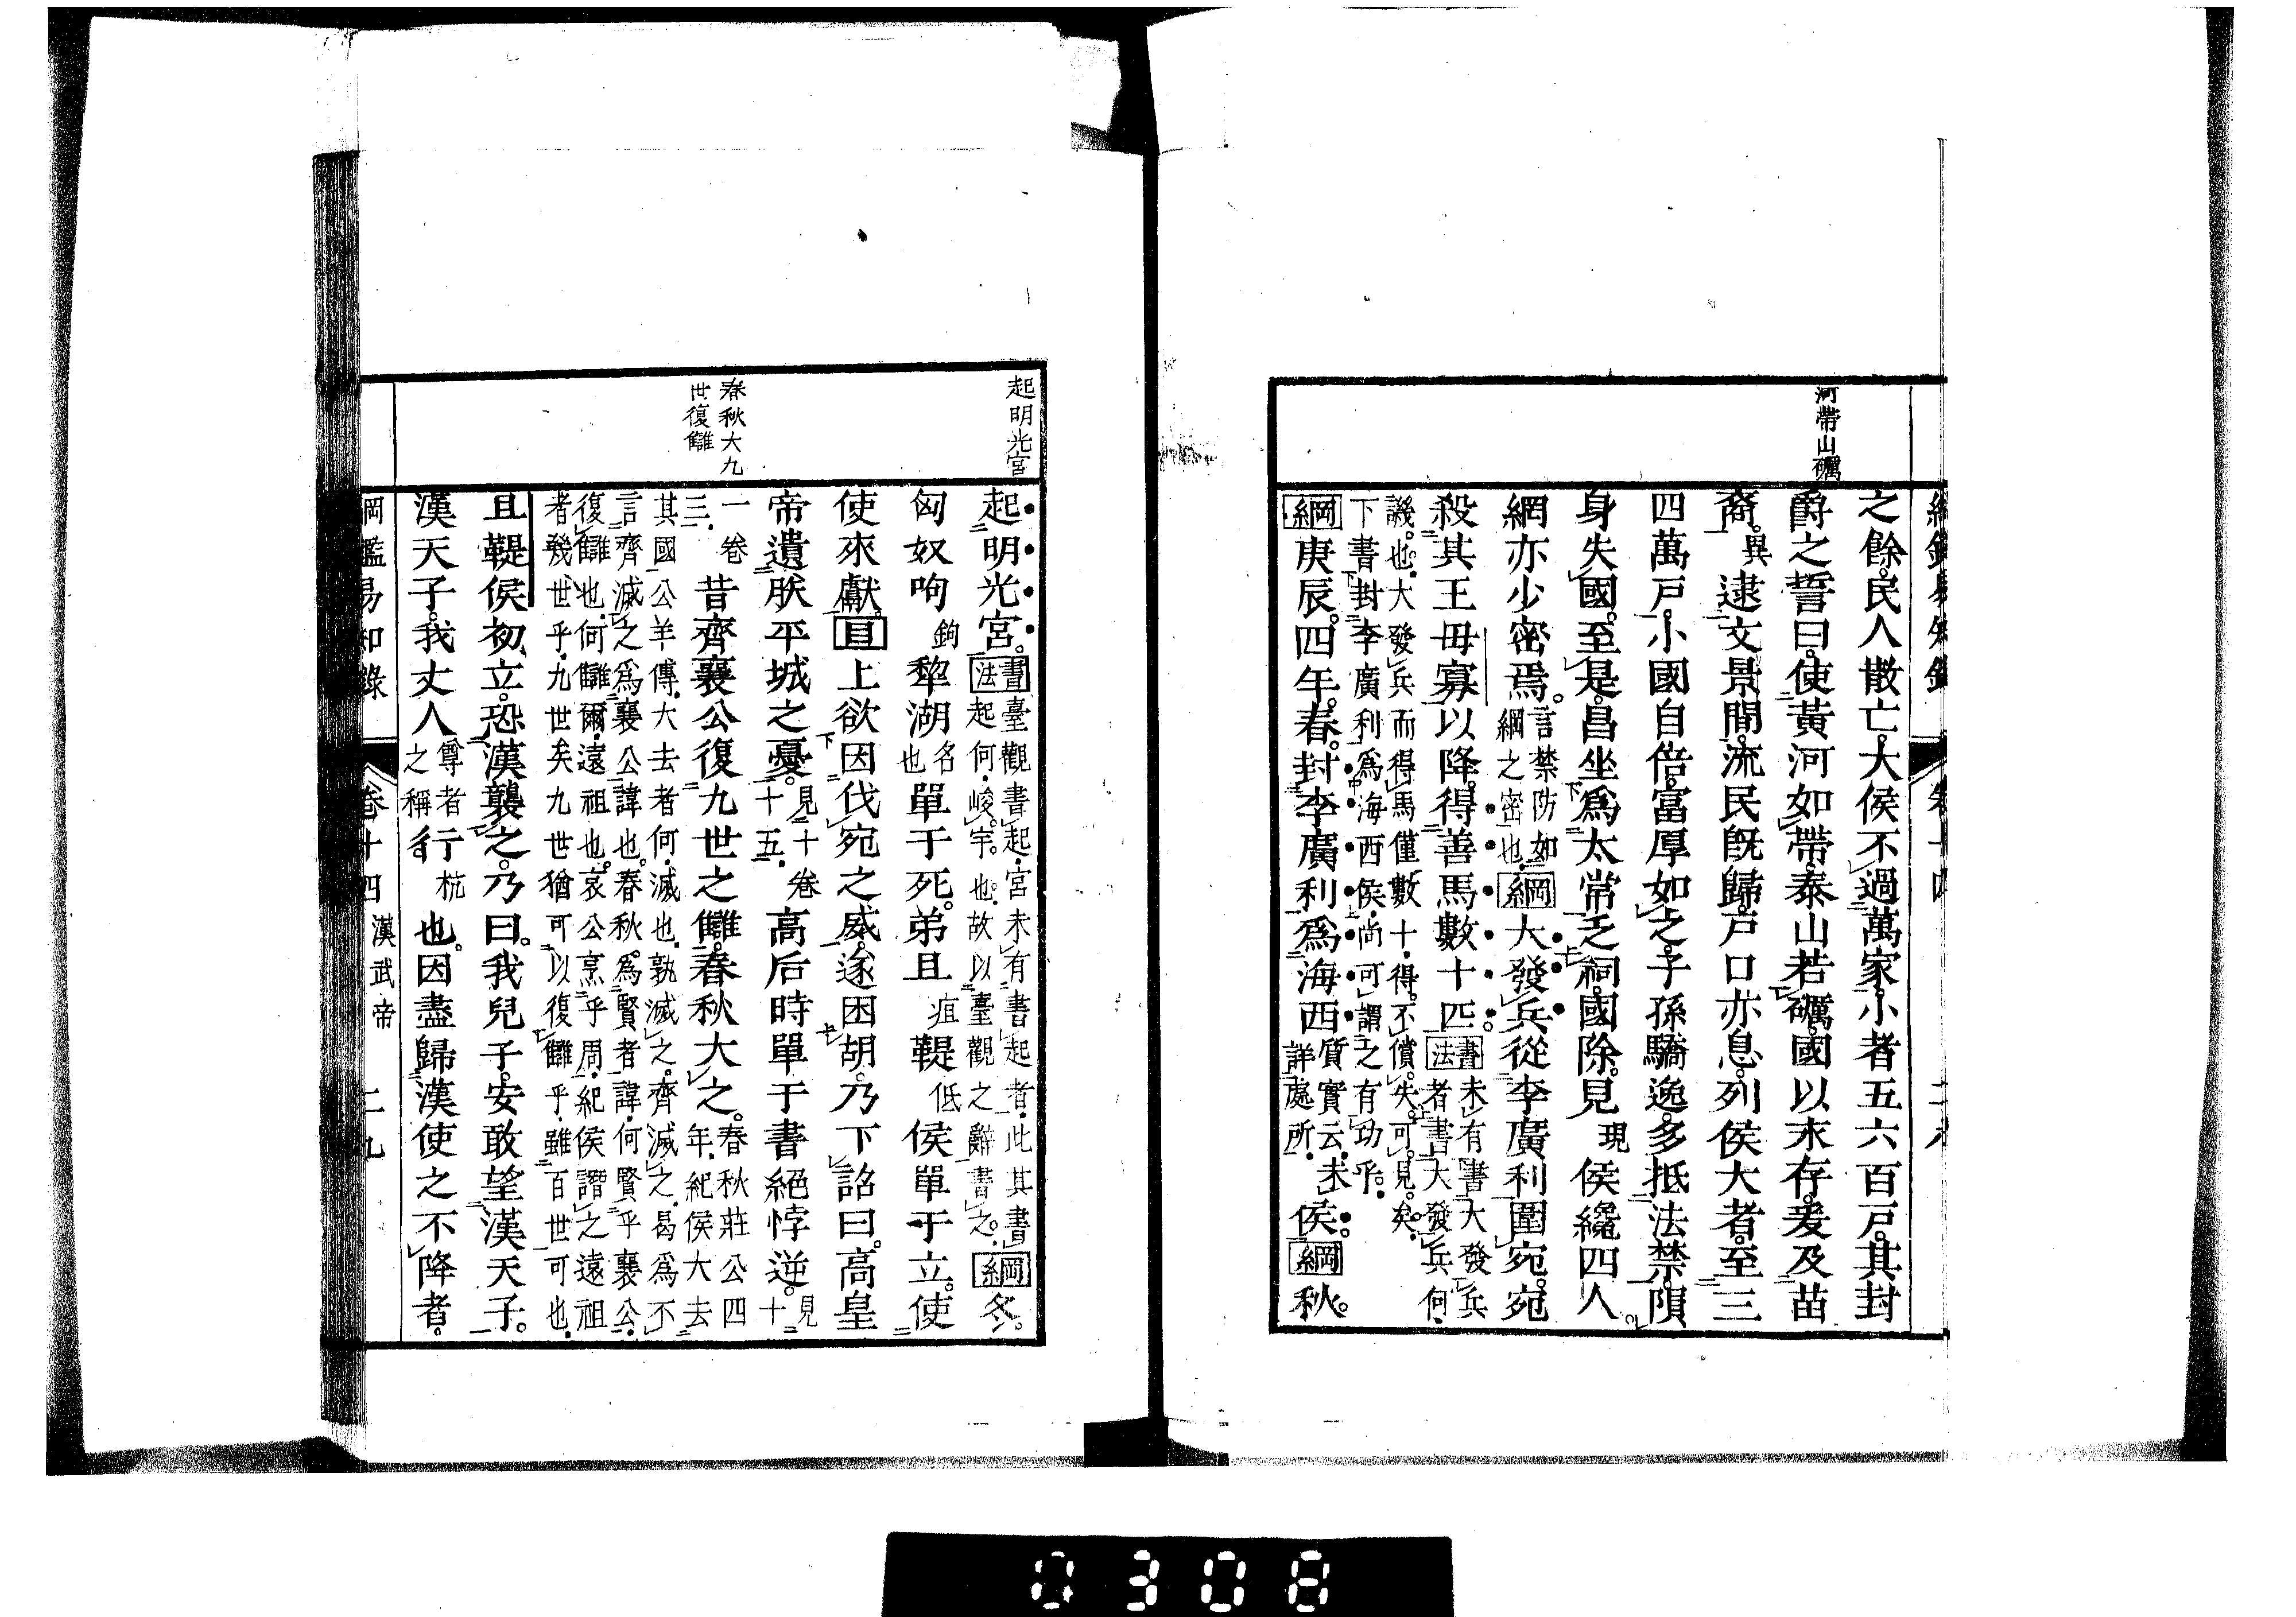 河帶山礪
之餘。民人散亡。大侯不過萬家。小者五六百戸。其封
爵之誓曰。使黃河如帶。泰山若礪。國以末存。爰及苗
裔。異逮文景間。流民既歸。戸口亦息。列侯大者。至三
四萬戸。小國自倍。富厚如之。子孫驕逸。多抵法禁。隕
身失國。至是。昌坐爲太常乏祠。國除。見現侯纔四人。
網亦少密焉。言禁防如網之密也。綱大發兵從李廣利圍宛。宛
殺其王毋寡以降。得善馬數十匹。書法未有書大發兵者。書大發兵何。
譏。也。大發兵而得馬僅數十。得。不償。失。可。見。矣。
下書封李廣利爲海西侯。尚可謂之有功乎。
綱庚辰。四年。春。封李廣利爲海西質實云。未詳處所。侯。綱秋。
起明光宮
春秋大九
世復讎
起明光宮。書法臺觀書起。宮未有書起者。此其書起何。峻。宇。也。故以臺觀之辭書之。綱冬。
匈奴呴鉤犂湖名也單于死。弟且疽鞮低侯單于立。使
使來獻。目上欲因伐宛之威。遂困胡。乃下詔曰。高皇
帝遺朕平城之憂。見十卷十五。高后時單于書絕悖逆。見十
一卷三。昔齊襄公復九世之讎。春秋大之。春秋莊公四年。紀侯大去
其國。公羊傳。大去者何。滅也。孰滅之。齊滅之。曷爲不
言齊滅之。爲襄公諱也。春秋。爲賢者諱。何賢乎襄公。
復讎也。何讎爾。遠祖也。哀公烹乎周。紀侯譖之。遠祖
者。幾世乎。九世矣。九世猶可以復讎乎。雖百世可也。
且鞮侯初立。恐漢襲之。乃曰。我兒子。安敢望漢天子。
漢天子。我丈人尊者之稱行杭也。因盡歸漢使之不降者。
綱鑑易知錄 卷十四 漢武帝 二九
0308